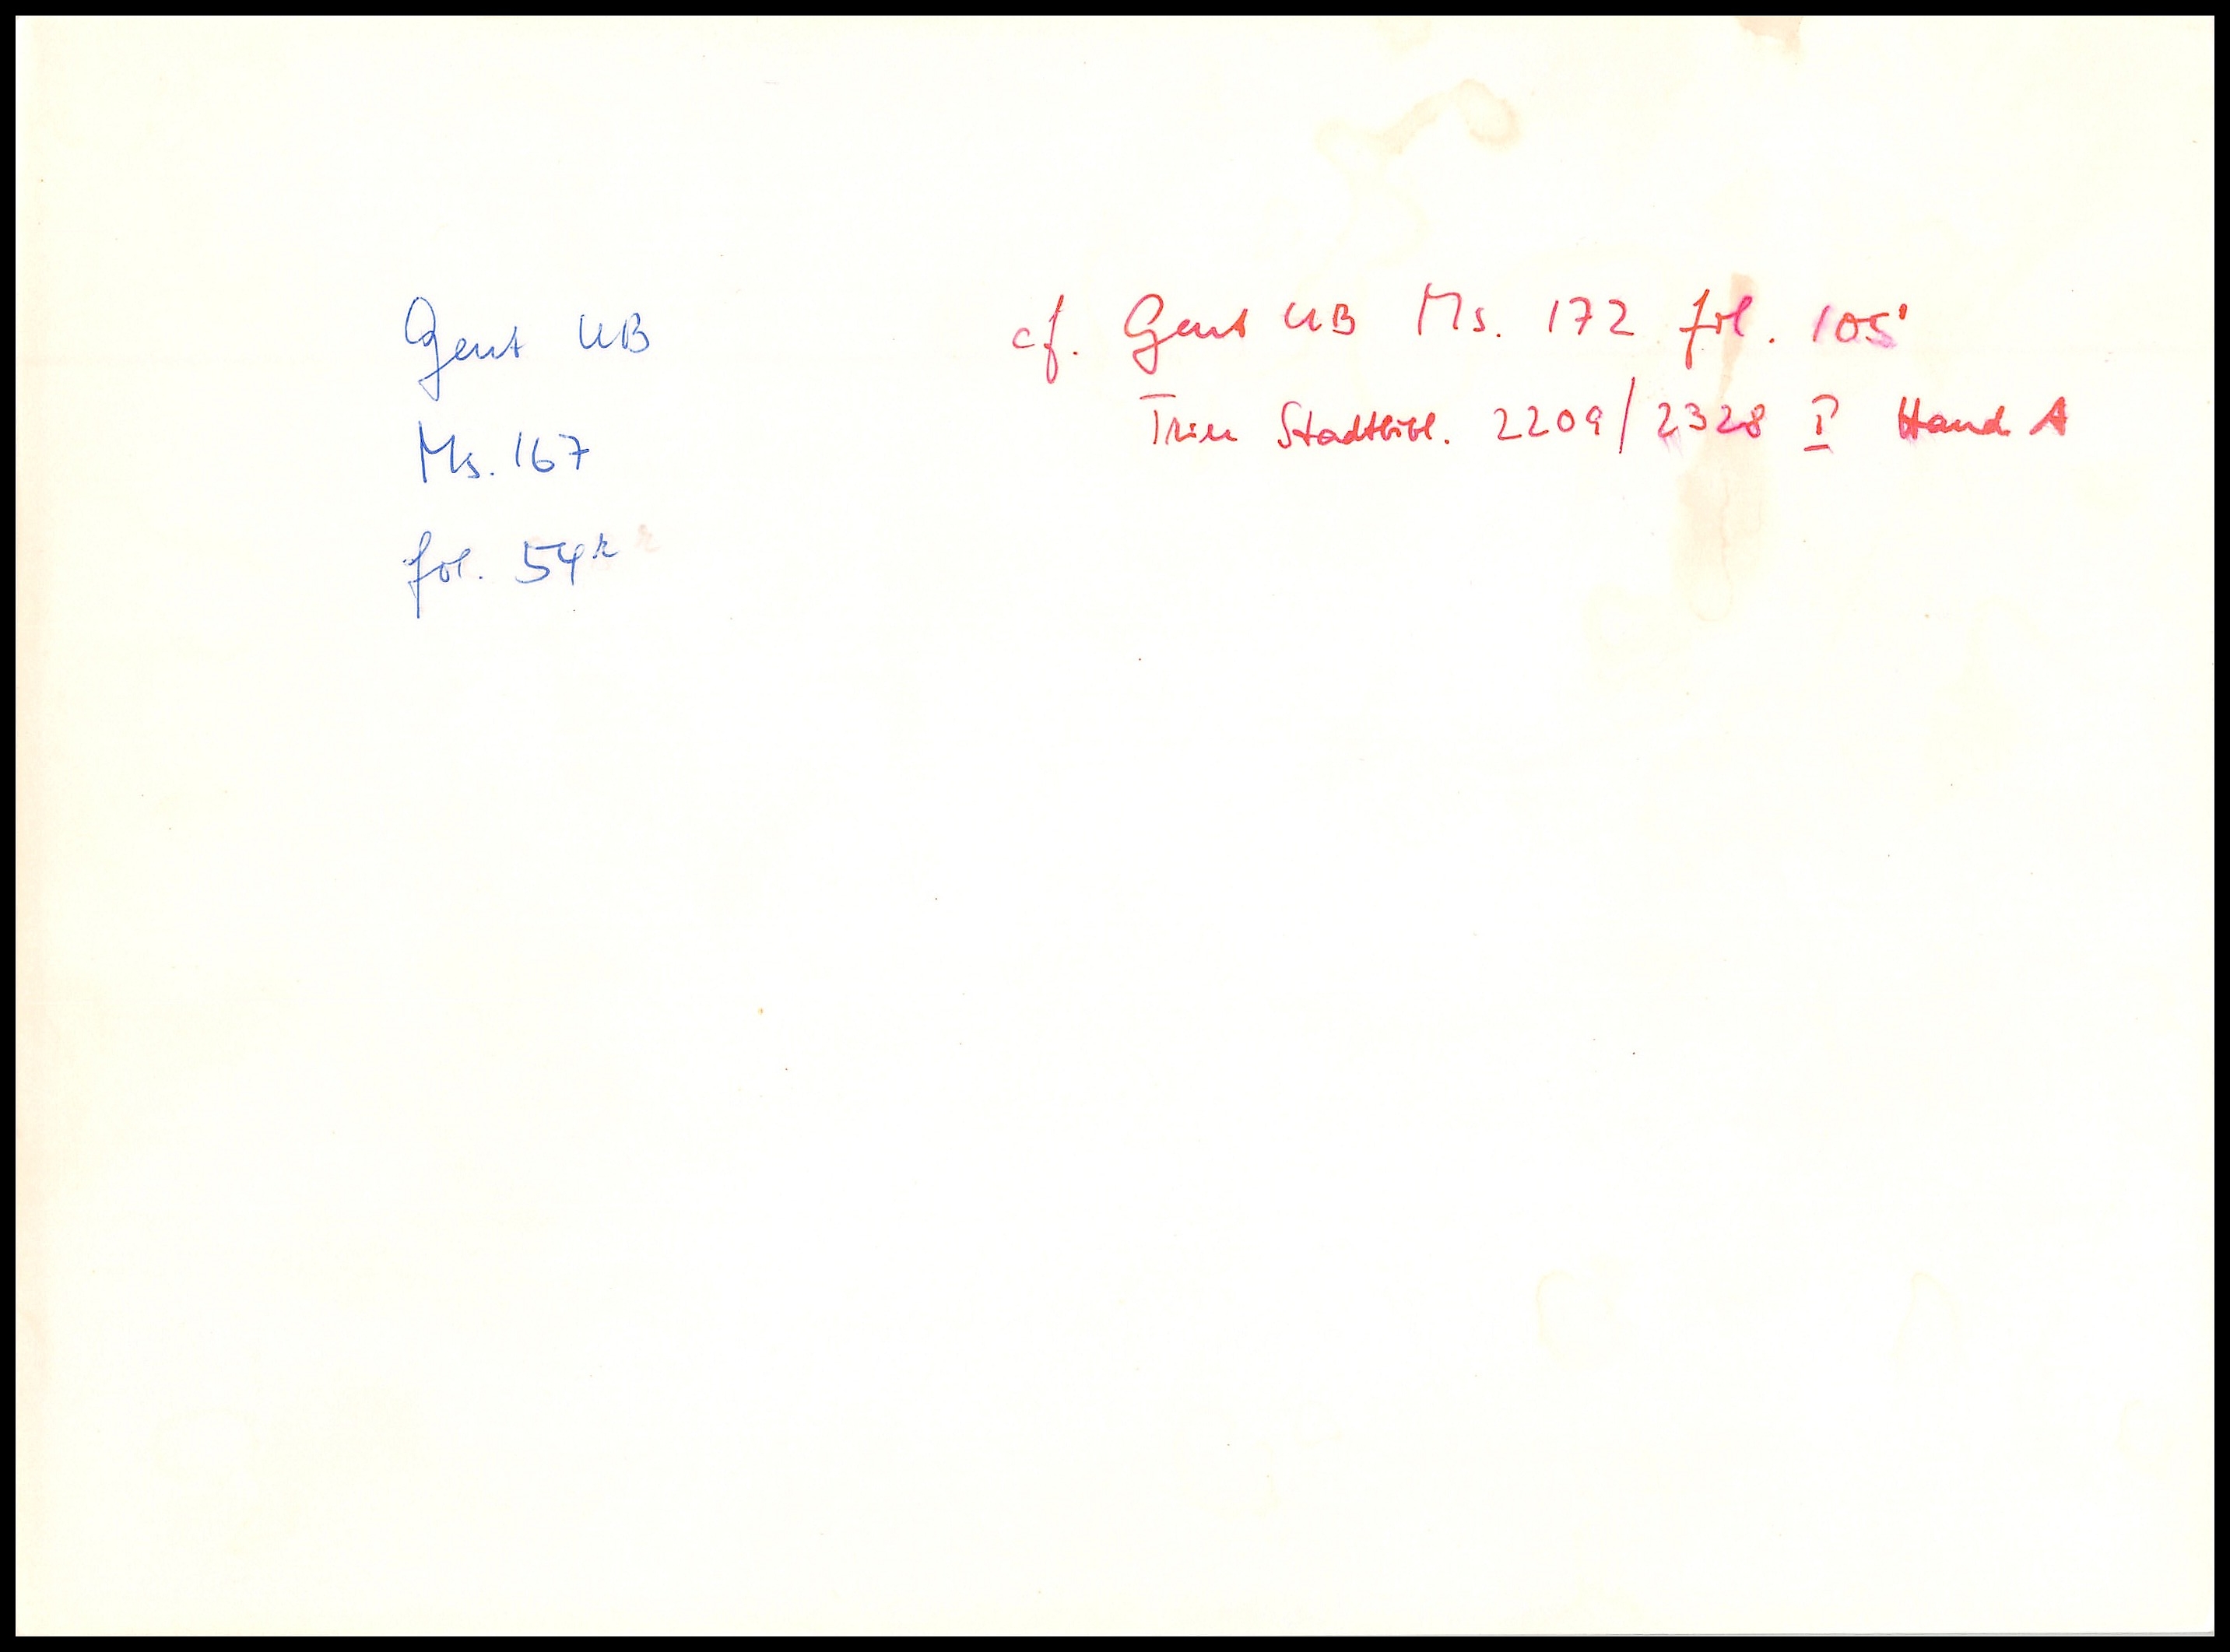 Gent UB
Ms. 167
fol. 54r
cf. Gent UB Ms. 172 fol. 105'
Trier Stadtbibl. 2209/2328 I Hand A